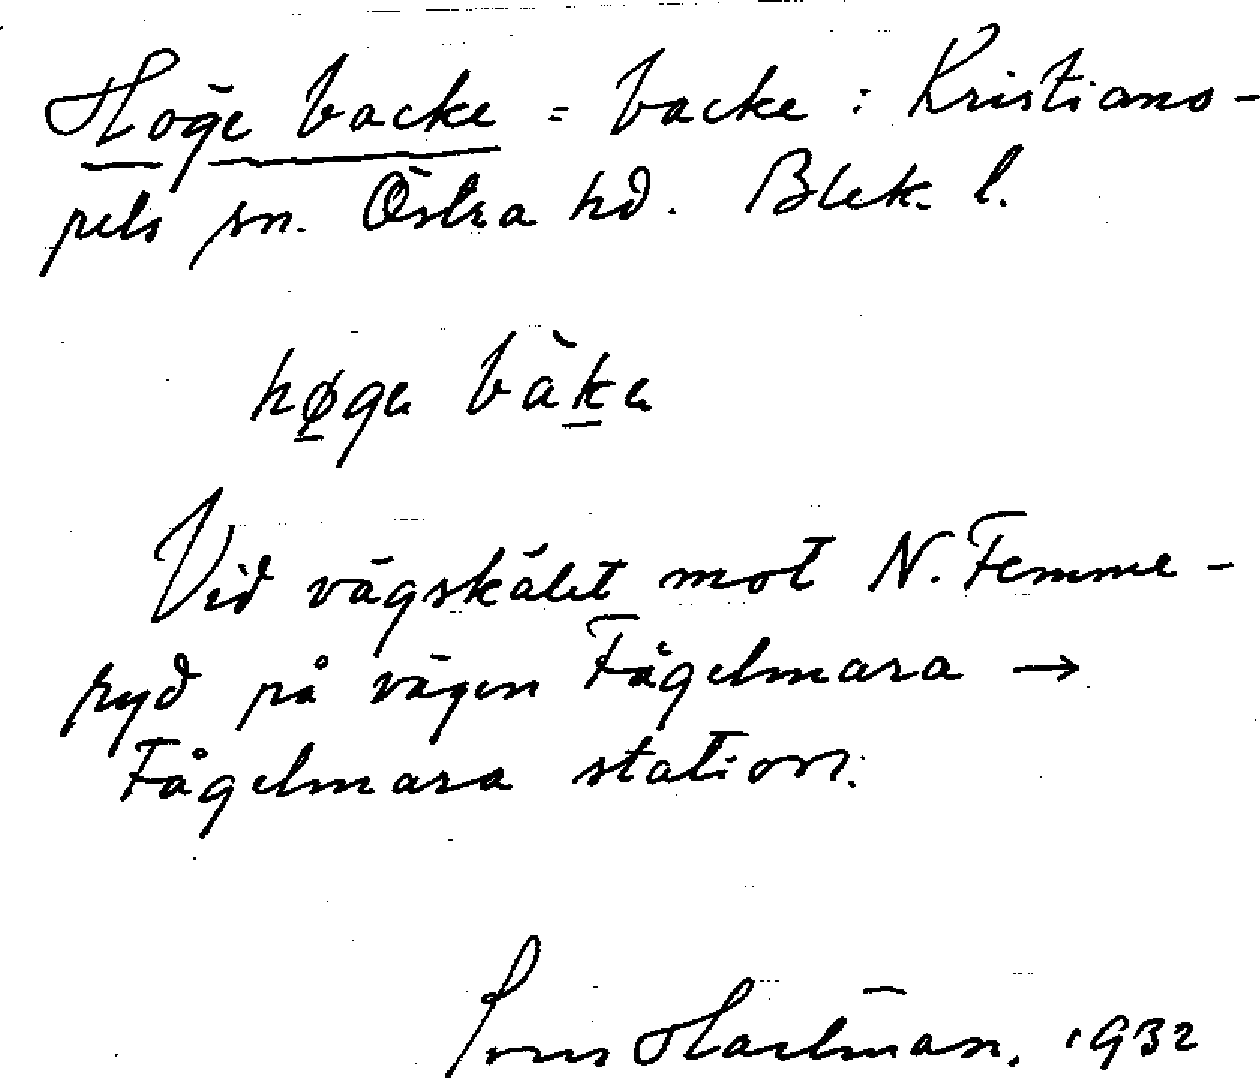 Höge backe = backe : Kristiano-
pels sn. Östra hd. Blek. l.
høga bàka
Vid vägskälet mot N. Femme-
ryd på vägen Fågelmara →
Fågelmara station.
Hartman. 1932